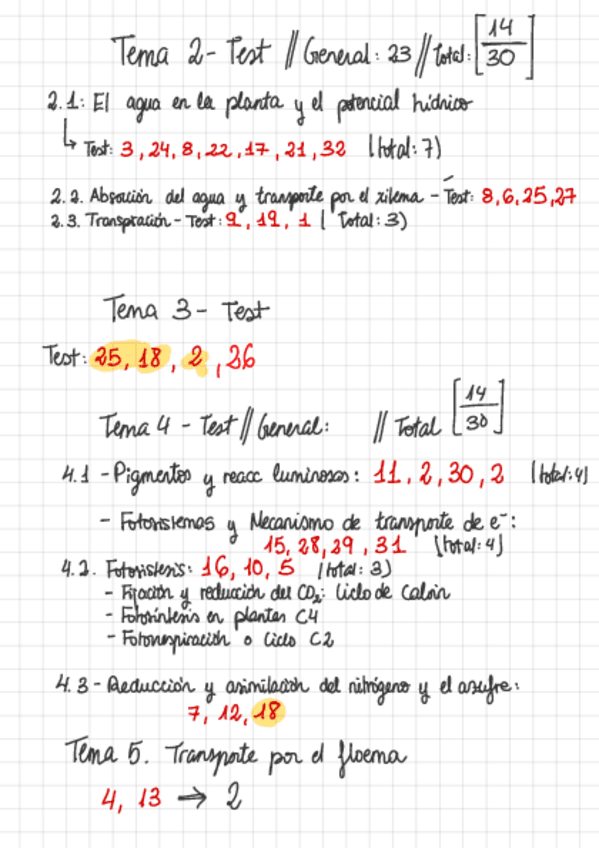 Tema 2 - Test // General: 23 // Total: [14/30]
2.1: El agua en la planta y el potencial hídrico
↳ Test: 3, 24, 8, 22, 17, 21, 32 (total: 7)
2.2. Absorción del agua y transporte por el xilema - Test: 8, 6, 25, 27
2.3. Transpiración - Test: 9, 19, 1 ( Total: 3)
Tema 3 - Test
Test: 25, 18, 2, 26
Tema 4 - Test // General: // Total [14/30]
4.1 - Pigmentos y reacc luminosas: 11, 2, 30, 2 (total: 4)
- Fotosistemas y Mecanismo de transporte de e⁻:
15, 28, 29, 31 (total: 4)
4.2. Fotosístesis: 16, 10, 5 (total: 3)
- Fijación y reducción del CO₂: Ciclo de Calvin
- Fotosíntesis en plantas C4
- Fotorrespiración o Ciclo C2
4.3 - Reducción y asimilación del nitrógeno y el azufre:
7, 12, 18
Tema 5. Transporte por el floema
4, 13 → 2